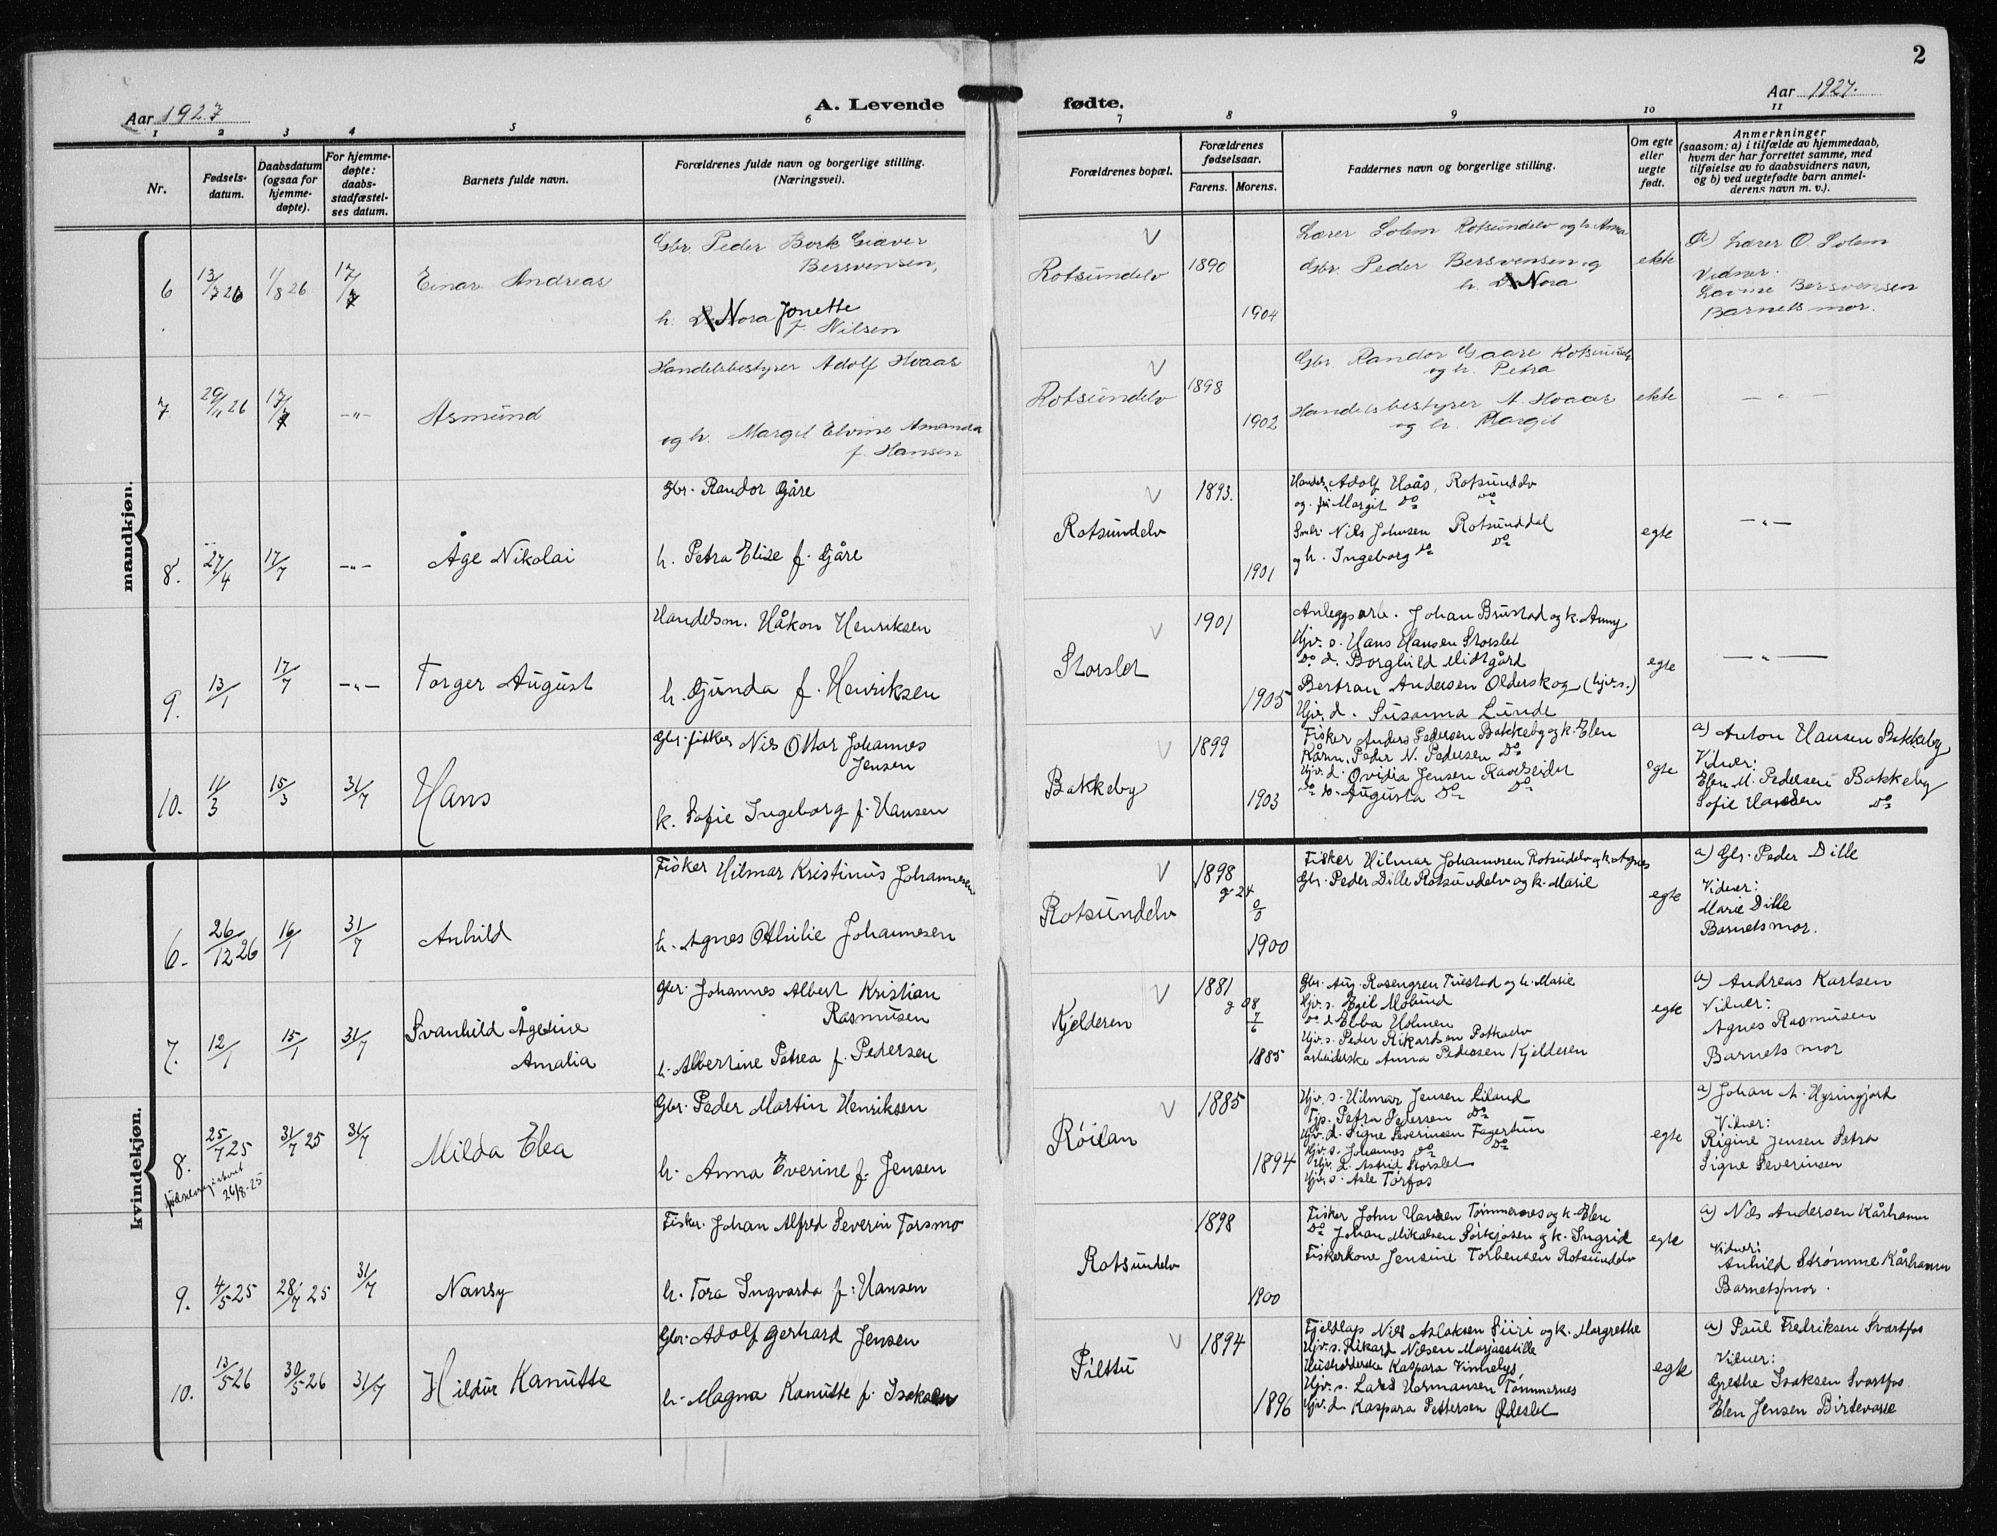 2
Aar 1927
A. Levende
fødte.
Aar 1927.
1 2 3 4 5 6 7 8 9 10 11
Nr.
Fødsels-
datum.
Daabsdatum
(ogsaa for
hjemme-
døpte).
For hjemme-
døpte:
daabs-
stadfæstel-
ses datum.
Barnets fulde navn.
Forældrenes fulde navn og borgerlige stilling.
(Næringsvei).
Forældrenes bopæl.
Forældrenes
fødselsaar.
Farens. Morens.
Faddernes navn og borgerlige stilling.
Om egte
eller
uegte
født.
Anmerkninger
(saasom: a) i tilfælde av hjemmedaab,
hvem der har forrettet samme, med
tilføielse av to daabsvidners navn,
og b) ved uegtefødte barn anmel-
derens navn m. v.).
mandkjøn.
6
13/7 26
1/8 26
17/7
Einar Andreas
Gbr. Peder Bork Giæver
Bersvensen,
h. Nora Jonette
f. Nilsen
Rotsundelv
1890
1904
Lærer Solem Rotsundelv og h. Anna
Gbr. Peder Bersvensen og
h. Nora
ekte
a) Lærer O. Solem
Vidner:
Lovise Bersvensen
Barnets mor.
7
29/11 26
17/7
-"-
Asmund
Handelsbestyrer Adolf Hvaas
og h. Margit Elvine Amanda
f. Hansen
Rotsundelv
1898
1902
Gbr. Randor Gaare Rotsundelv
og h. Petra
Handelsbestyrer A. Hvaas
og h. Margit
ekte
- " -
8.
27/4
17/7
-"-
Åge Nikolai
Gbr. Randor Gåre
h. Petra Elise f. Gåre
Rotsundelv
1893.
1901
Adolf Haås, Rotsundelv
og Margit do do
Nils Johnsen Rotsunddal
og h. Ingeborg do do
egte
-"-
9.
13/1
17/7
-"-
Torger August
Handelsm. Håkon Henriksen
h. Gunda f. Henriksen
Storslet
1901
1905
Anleggsarb. Johan Brustad og k. Anny
Hjv. s. Hans Hansen Storslet
do d. Borghild Midtgård
Bertran Andersen Olderskog (hjv.s.)
Hjv. d. Susanna Lunde
egte
- " -
10.
11/3
15/3
31/7
Hans
Gbr. fisker Nils Ottar Johannes
Jensen
k. Sofie Ingeborg f. Hansen
Bakkeby
1899
1903
Fisker Anders Pedersen Bakkeby og k. Elen
Peder N. Pedersen do
Hjv. d. Ovidia Jensen Ravelseidet
do do Augusta do do
egte
a) Anton Hansen Bakkeby
Vidner:
Elen M. Pedersen Bakkeby
Sofie Hansen do
kvindekjøn.
6.
26/12 26
16/1
31/7
Anhild
Fisker Hilmar Kristinus Johannesen
h. Agnes Othilie Johannesen
Rotsundelv
1898
g 24
1900
Fisker Hilmar Johannesen Rotsundelv og k. Agnes
Gbr. Peder Dille Rotsundelv og k. Marie
egte
a) Gbr. Peder Dille
Vidner:
Marie Dille
Barnets mor.
7.
12/1
15/1
31/7
Svanhild Ågesine
Amalia
Gbr. Johannes Albert Kristian
Rasmusen
h. Albertine Petrea f. Pedersen
Kjelderen
1881
g 08
7/6
1885
Gbr. Aug. Rosengren Tuestad og h. Marie
Hjv. s. Egil Moland
do d Ebba Holmen
Hjv. s. Peder Rikardsen Potkaelv
arbeiderske Anna Pedersen Kjelderen
egte
a) Andreas Karlsen
Vidner:
Agnes Rasmusen
Barnets mor
8.
25/7 25
26/8-25
31/7 25
31/7
Milda Elea
Gbr. Peder Martin Henriksen
h. Anna Everine f. Jensen
Røilan
1885
1894
Hjv. s. Hilmar Jensen Liland
Tjp. Petra Pedersen do
Hjv. d. Signe Severinsen Fagertun
Hjv. s. Johannes do do
Hjv. d. Astrid Storslet
Hjv. s. Asle Torfos
egte
a) Johan A. Hysingjord
Vidner:
Rigine Jensen Sætra
Signe Severinsen
9.
4/5 25
28/7 25
31/7
Nansy
Fisker. Johan Alfred Severin Torsmo
h. Tora Ingvarda f. Hansen
Rotsundelv
1898
1900
Fisker John Hansen Tømmernes og k. Elen
do Johan Mikalsen Sørkjosen og k. Ingrid
Fiskerkone Jensine Torbensen Rotsundelv
egte
a) Nils Andersen Kårhamn
Vidner:
Anhild Strømme Kårhamn
Barnets mor.
10.
13/5 26
30/5 26
31/7
Hildur Kanutte
Gbr. Adolf Gerhard Jensen
h. Magna Kanutte f. Isaksen
Pilttu
1894
1896
Fjeldlap Nils Aslaksen Siiri og k. Margrethe
Hjv. s. Rikard Nilsen Marjasstille
Husholderske Kaspara Vinnelys
Hjv. s. Lars Hermansen Tømmernes
Hjv. d Kaspara Pettersen Oldeslet
egte
a) Paul Fredriksen Svartfos
Vidner:
Grethe Isaksen Svartfos.
Elen Jensen Birtevarre